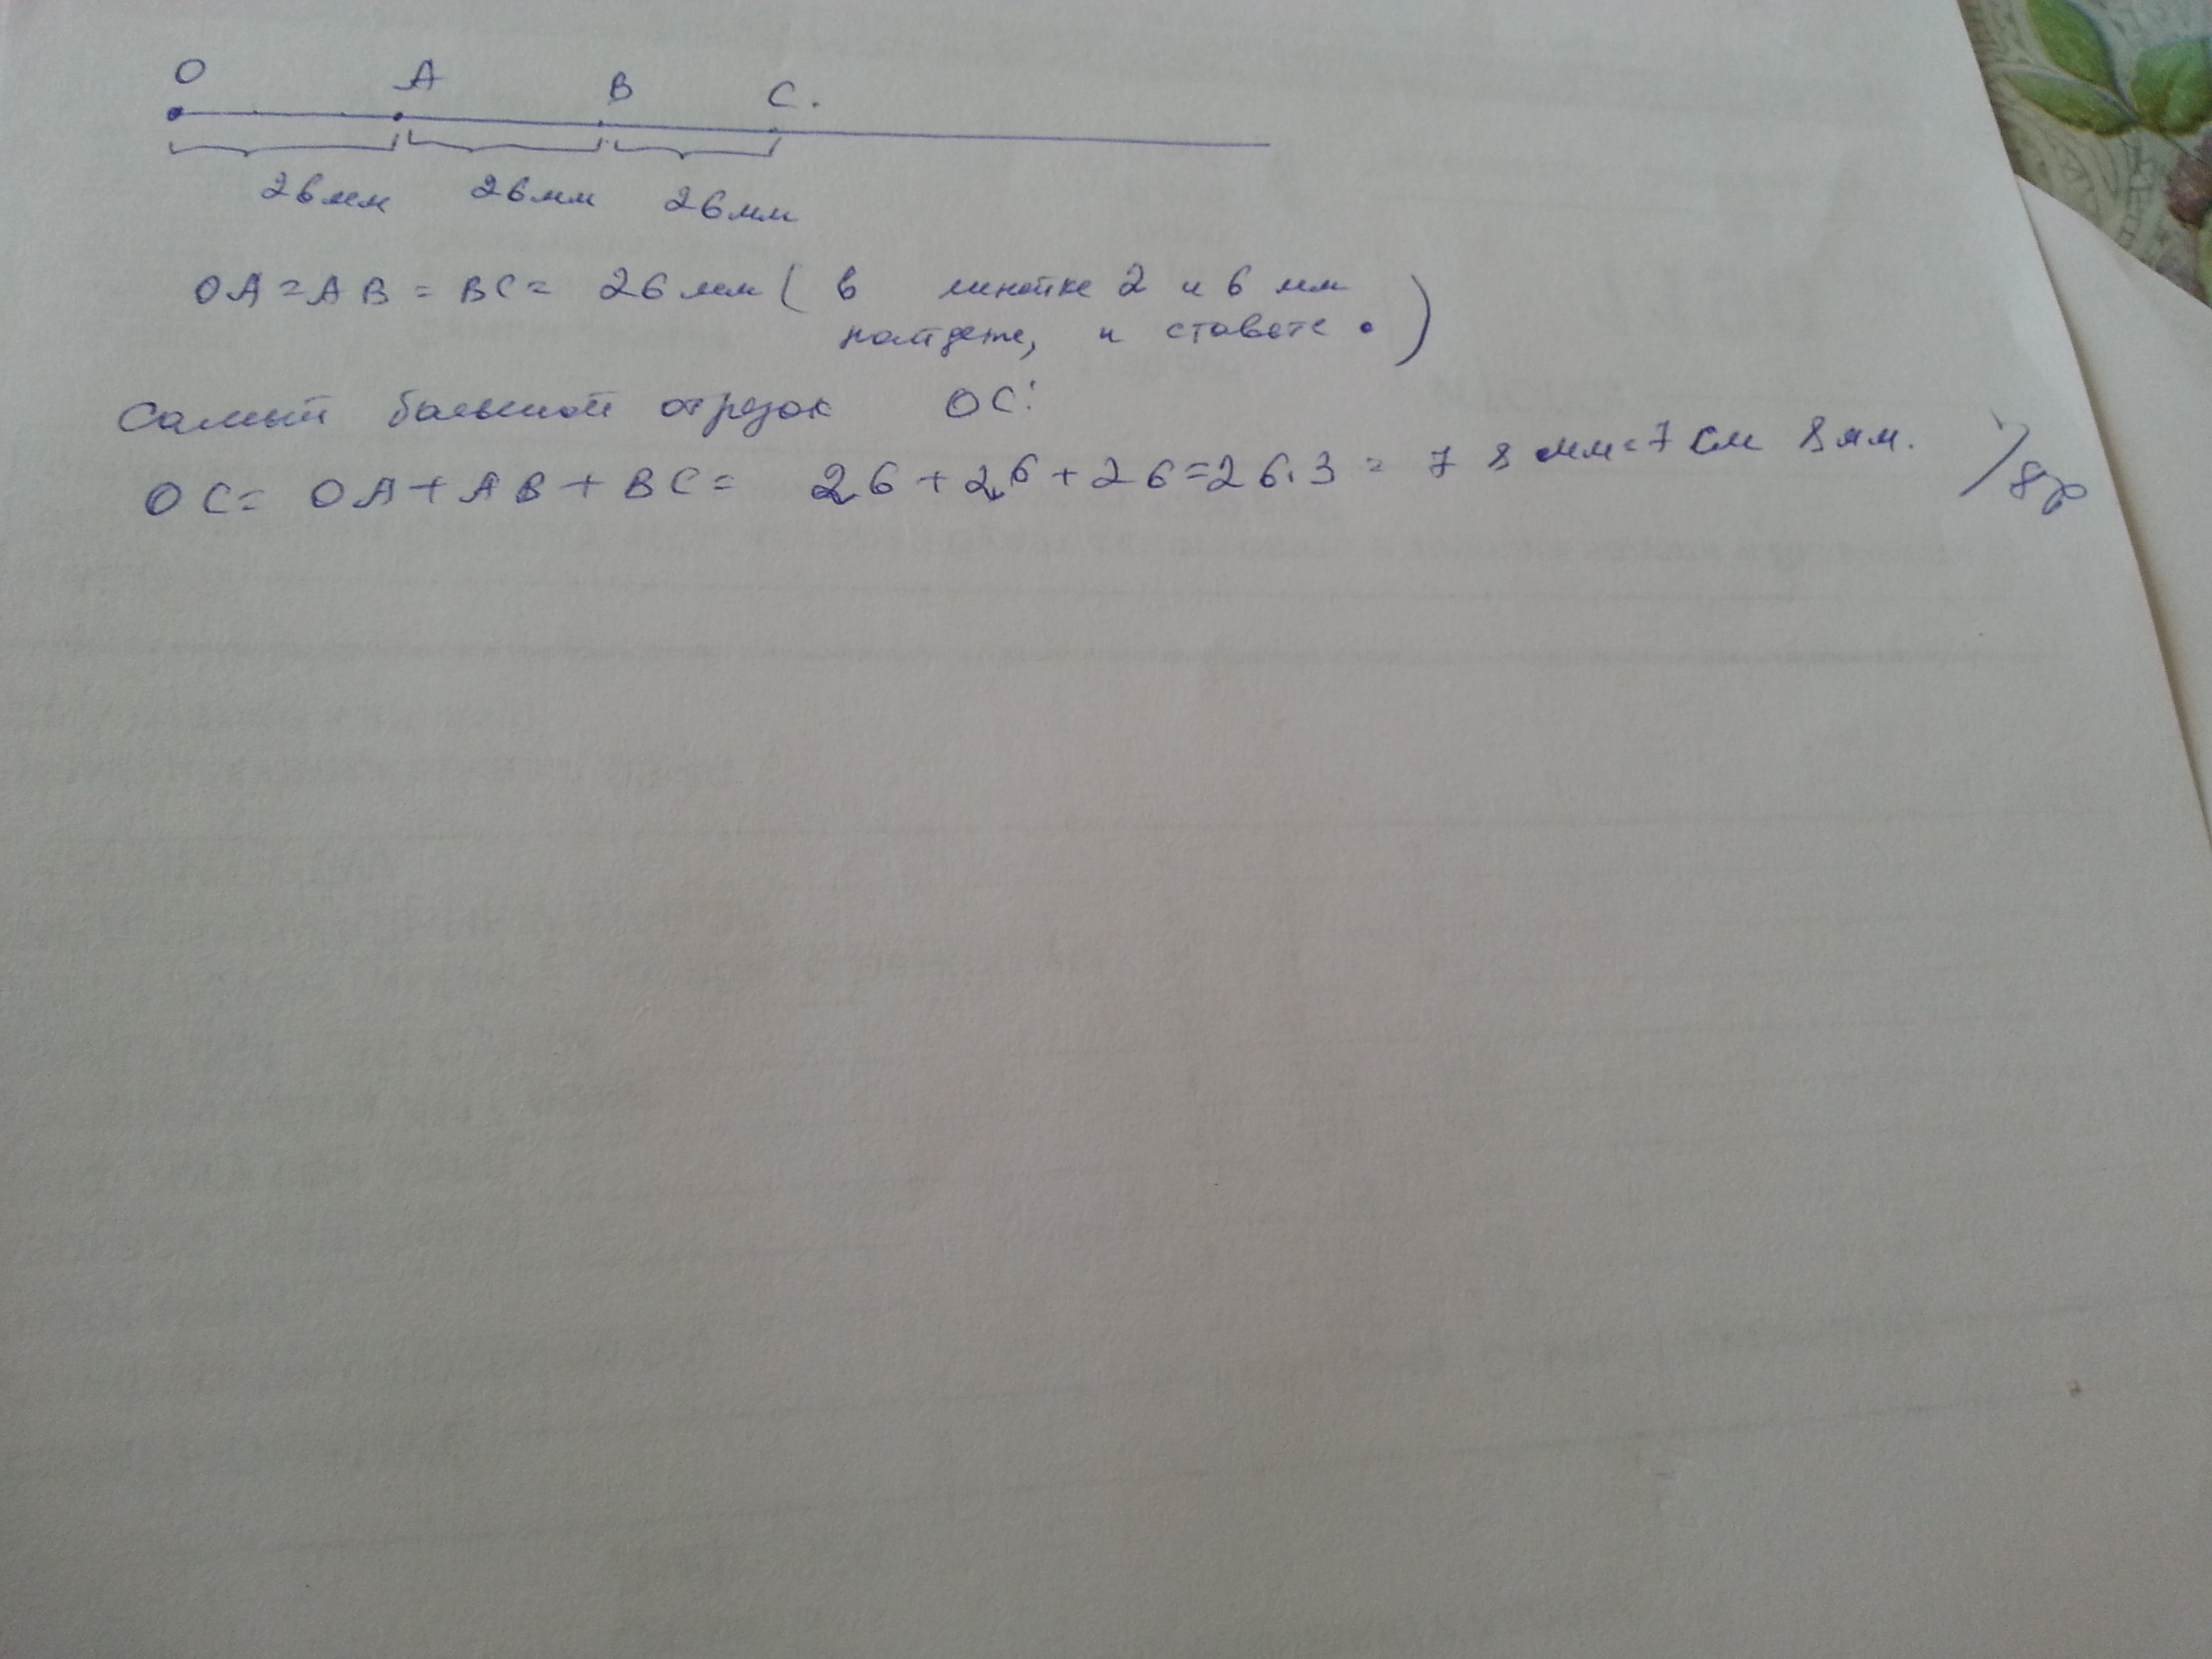 O A B C.
26мм 26мм 26мм
OA = AB = BC = 26 мм ( в линейке 2 и 6 мм
найдете, и ставьте • )
Самый большой отрезок OC:
OC = OA + AB + BC = 26 + 26 + 26 = 26.3 = 78 мм = 7 см 8 мм.